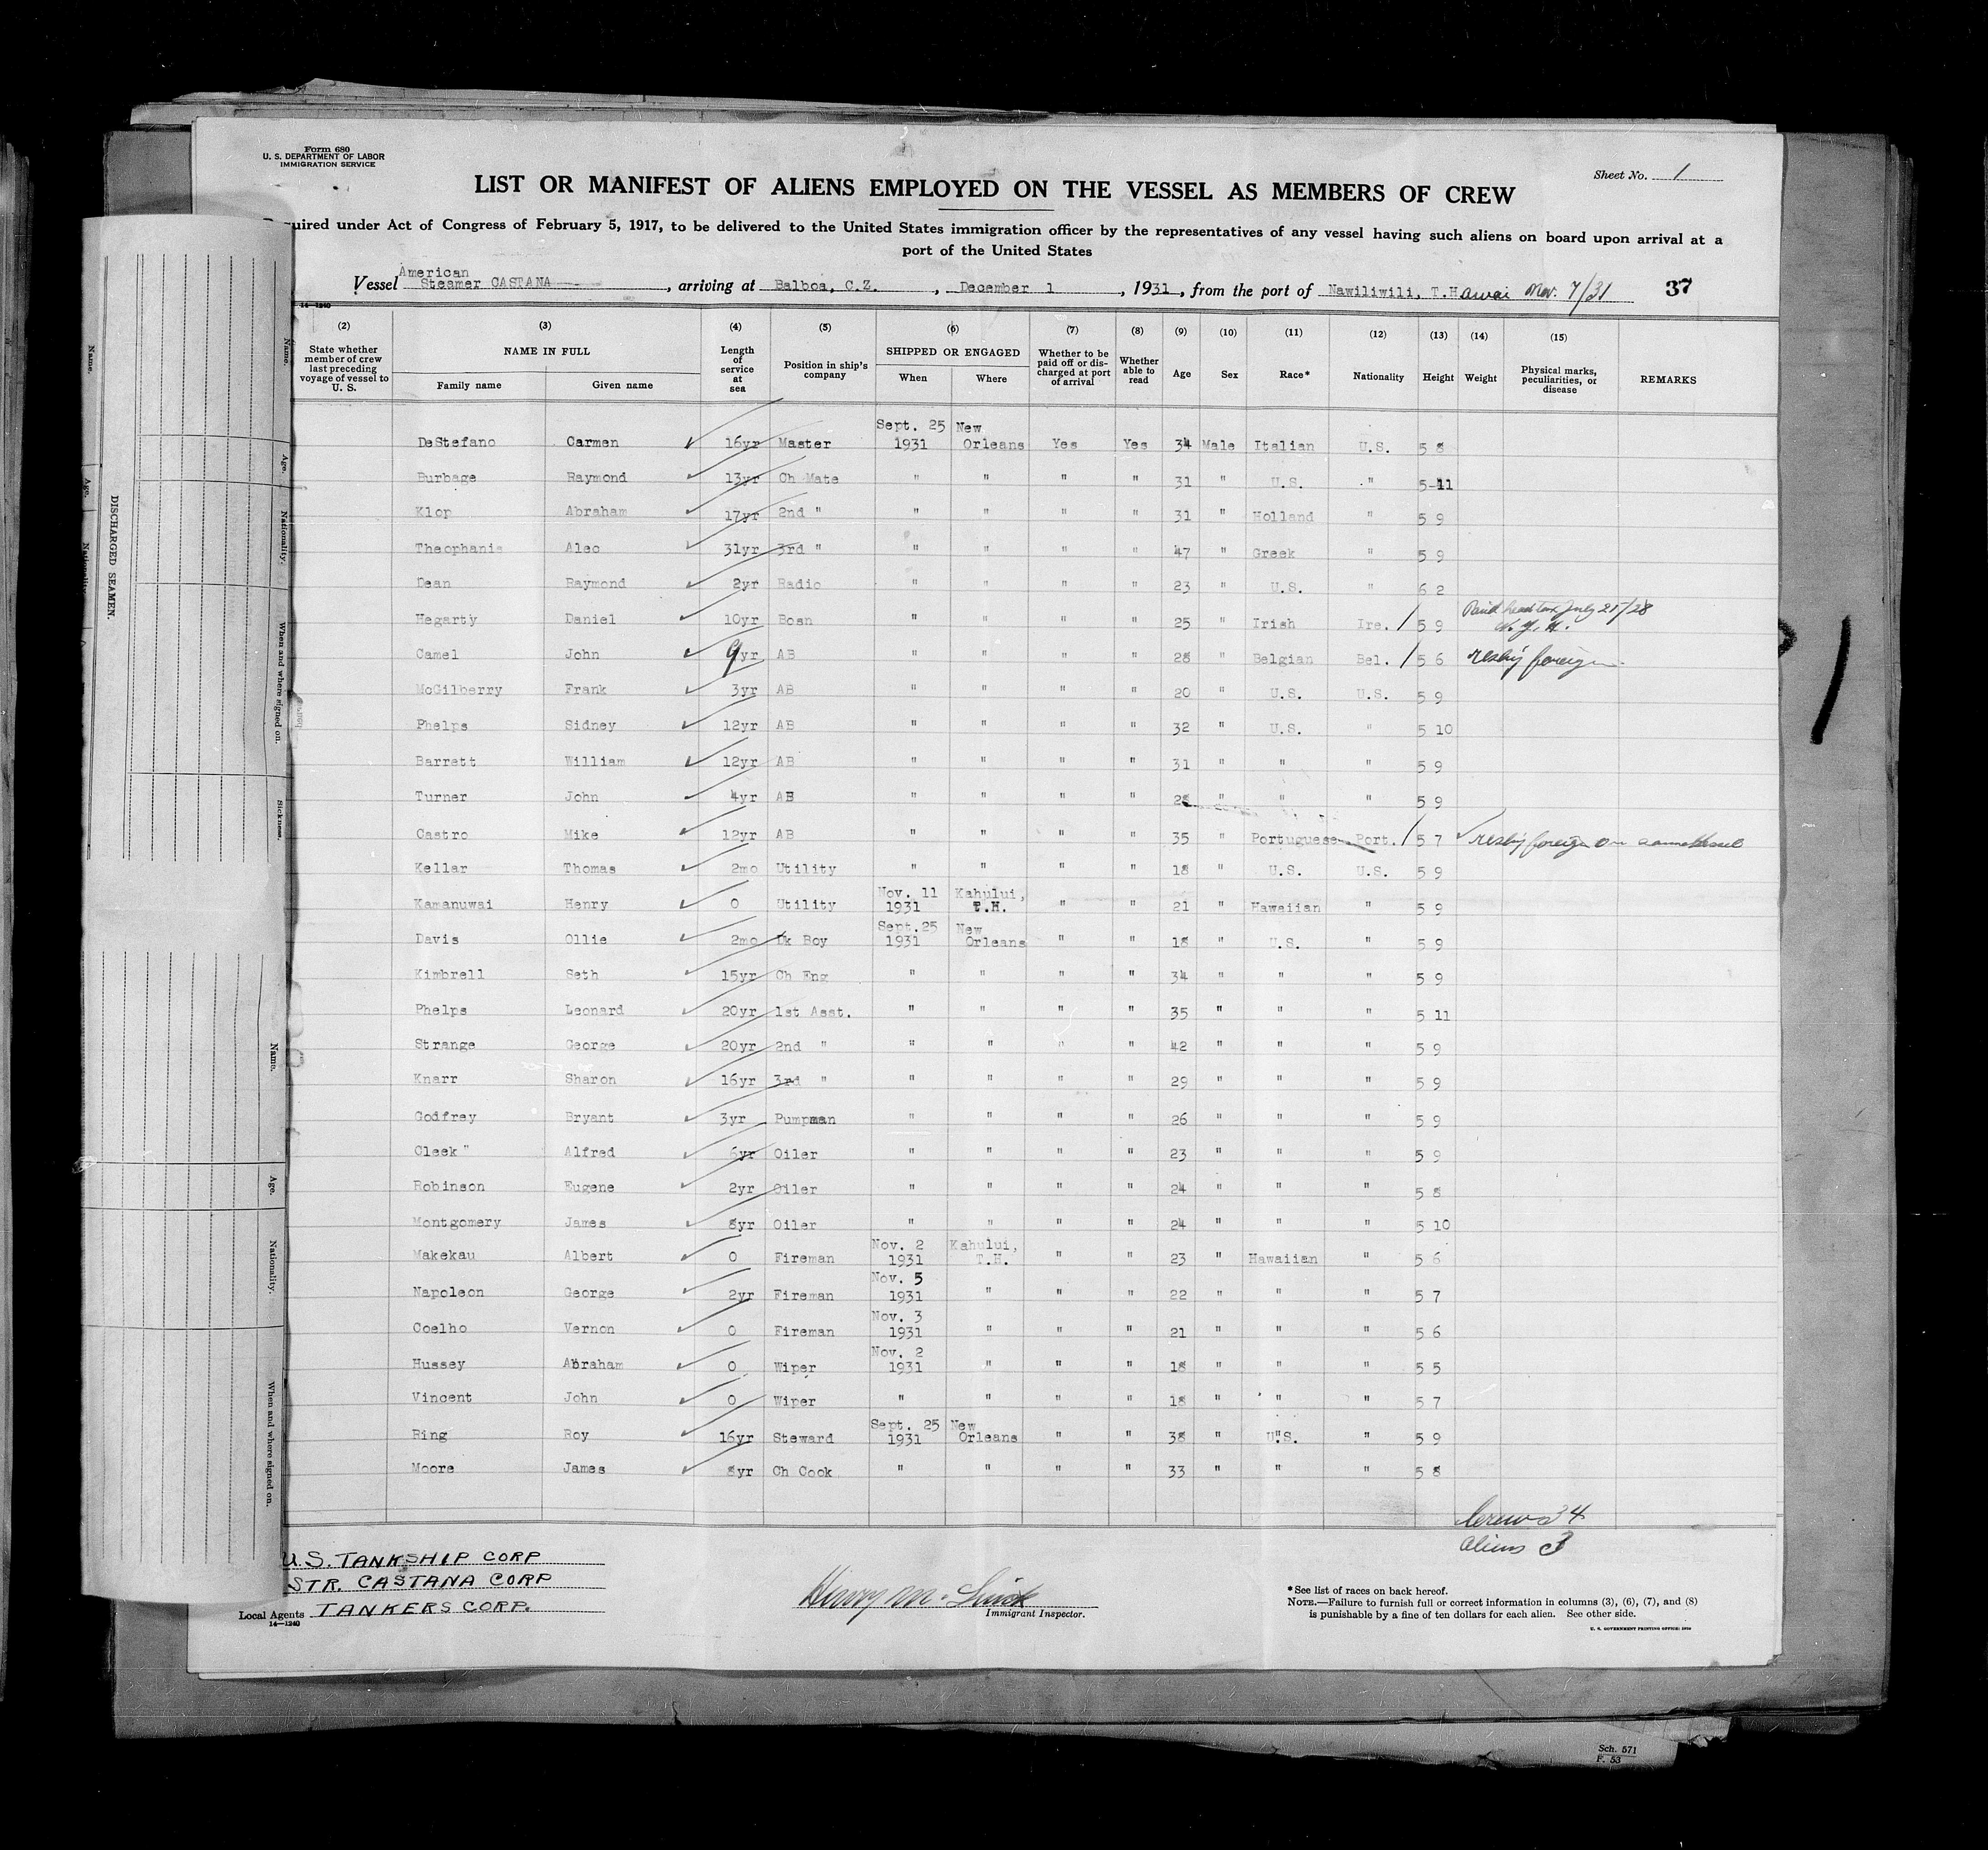 Form 680
U. S. DEPARTMENT OF LABOR
IMMIGRATION SERVICE
Sheet No. 1
LIST OR MANIFEST OF ALIENS EMPLOYED ON THE VESSEL AS MEMBERS OF CREW
quired under Act of Congress of February 5, 1917, to be delivered to the United States immigration officer by the representatives of any vessel having such aliens on board upon arrival at a
port of the United States
American
Vessel Steamer CASTANA, arriving at Balboa, C.Z., December 1, 1931, from the port of Nawiliwili, T.Hawai Nov. 7/31 37
14—1240
(2) (3) (4) (5) (6) (7) (8) (9) (10) (11) (12) (13) (14) (15)
State whether member of crew last preceding voyage of vessel to U. S. NAME IN FULL Length of service at sea Position in ship's company SHIPPED OR ENGAGED Whether to be paid off or discharged at port of arrival Whether able to read Age Sex Race* Nationality Height Weight Physical marks, peculiarities, or disease REMARKS
Family name Given name When Where
DeStefano Carmen 16yr Master Sept. 25 1931 New Orleans Yes Yes 34 Male Italian U.S. 5 8
Burbage Raymond 13yr Ch Mate " " " " 31 " U.S. " 5-11
Klop Abraham 17yr 2nd " " " " " 31 " Holland " 5 9
Theophanis Alec 31yr 3rd " " " " " 47 " Greek " 5 9
Dean Raymond 2yr Radio " " " " 23 " U.S. " 6 2
Hegarty Daniel 10yr Bosn " " " " 25 " Irish Ire. / 5 9 Paid head tax July 25/28 N.Y.N.
Camel John 9yr AB " " " " 28 " Belgian Bel. / 5 6 resh'g foreign
McGilberry Frank 3yr AB " " " " 20 " U.S. U.S. 5 9
Phelps Sidney 12yr AB " " " " 32 " U.S. " 5 10
Barrett William 12yr AB " " " " 31 " " " 5 9
Turner John 4yr AB " " " " 28 " " " 5 9
Castro Mike 12yr AB " " " " 35 " Portuguese Port. / 5 7 resh'g foreign on same Vessel
Kellar Thomas 2mo Utility " " " " 18 " U.S. U.S. 5 9
Kamanuwai Henry 0 Utility Nov. 11 1931 Kahului, T.H. " " 21 " Hawaiian " 5 9
Davis Ollie 2mo Dk Boy Sept.25 1931 New Orleans " " 18 " U.S. " 5 9
Kimbrell Seth 15yr Ch Eng " " " " 34 " " " 5 9
Phelps Leonard 20yr 1st Asst. " " " " 35 " " " 5 11
Strange George 20yr 2nd " " " " " 42 " " " 5 9
Knarr Sharon 16yr 3rd " " " " " 29 " " " 5 9
Godfrey Bryant 3yr Pumpman " " " " 26 " " " 5 9
Cleek" Alfred 6yr Oiler " " " " 23 " " " 5 9
Robinson Eugene 2yr Oiler " " " " 24 " " " 5 8
Montgomery James 8yr Oiler " " " " 24 " " " 5 10
Makekau Albert 0 Fireman Nov. 2 1931 Kahului, T.H. " " 23 " Hawaiian " 5 6
Napoleon George 2yr Fireman Nov. 5 1931 " " " 22 " " " 5 7
Coelho Vernon 0 Fireman Nov. 3 1931 " " " 21 " " " 5 6
Hussey Abraham 0 Wiper Nov. 2 1931 " " " 18 " " " 5 5
Vincent John 0 Wiper " " " " 18 " " " 5 7
Ring Roy 16yr Steward Sept. 25 1931 New Orleans " " 38 " U.S. " 5 9
Moore James 8yr Ch Cook " " " " 33 " " " 5 8
Crew 34
Aliens 3
U.S. TANKSHIP CORP
STR. CASTANA CORP
Local Agents TANKERS CORP.
14—1240
Immigrant Inspector.
*See list of races on back hereof.
NOTE.—Failure to furnish full or correct information in columns (3), (6), (7), and (8)
is punishable by a fine of ten dollars for each alien. See other side.
U. S. GOVERNMENT PRINTING OFFICE:
DISCHARGED SEAMEN.
Name.
Age.
Nationality.
When and where signed on.
Sickness.
Name.
Age.
Nationality.
When and where signed on.
Name.
Age.
Sch. 571
F. 53